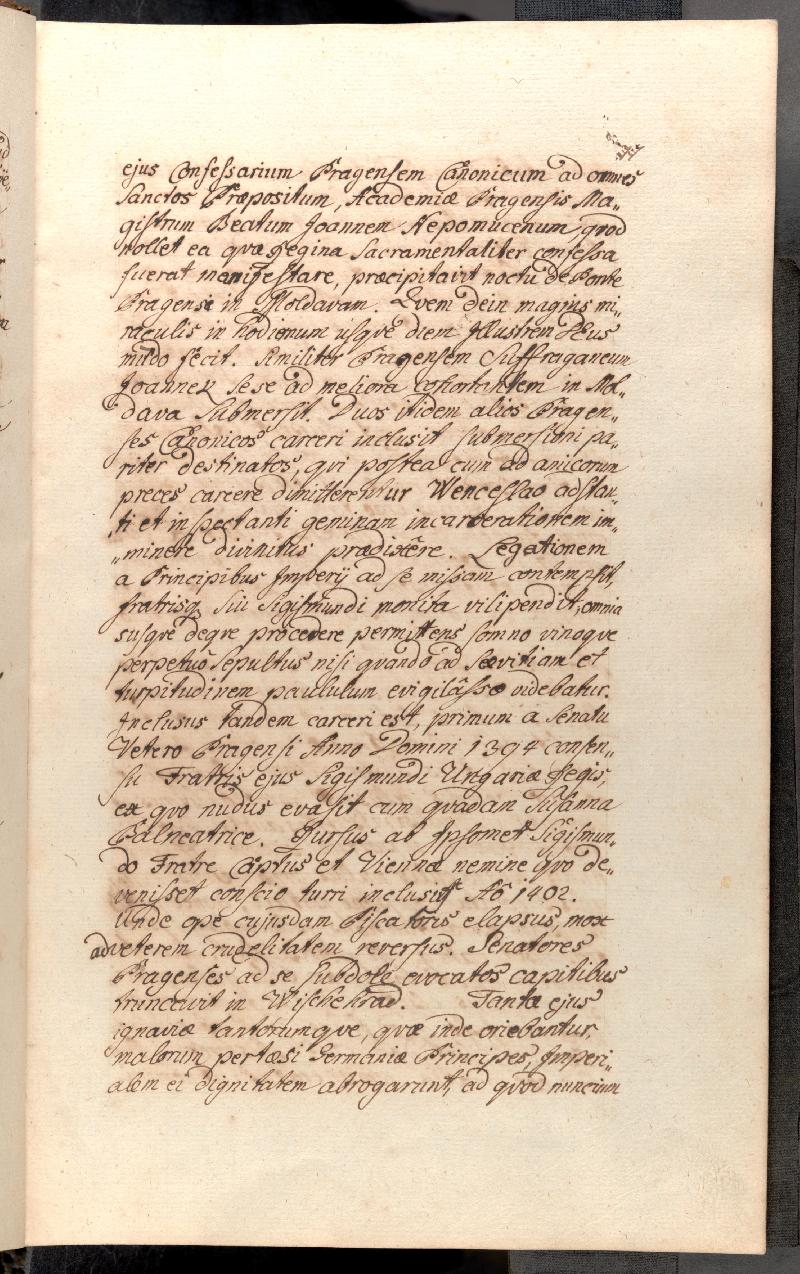 ejus Confessarium Pragensem Canonicum ad omnes
Sanctos Præpositum, Academiæ Pragensis Ma„
gistrum Beatum Joannem Nepomucenum, qvod
nollet ea qvæ Regina Sacramentaliter confessa
fuerat manifestare, præcipitavit noctu de Ponte
Pragensi in Moldavam. Qvem dein magnis mi„
raculis in hodiernum usqvè diem Illustrem Deus
mũdo fecit. Similiter Pragensem Suffraganeum
Joannem sese ad meliora cohortantem in Mol„
dava submersit. Duos itidem alios Pragen„
ses Canonicos carceri inclusit submersioni pa„
riter destinatos, qvi postea cum ad amicorum
preces carcere dimitterentur Wenceslao adstan„
ti et inspectanti geminam incarcerationem im„
„minere divinitus prædixêre. Legationem
a Principibus Imperij ad se missam contempsit,
fratrisq; sui Sigismundi monita vilipendit, omnia
susqvè deqve procedere permittens somno vinoqve
perpetuò sepultus nisi qvando ad sævitiam et
turpitudinem paululum evigilâsse videbatur.
Inclusus tandem carceri est, primum a Senatu
Vetero Pragensi Anno Domini 1394 consen„
su Fratris ejus Sigismundi Ungariæ Regis,
ex qvo nudus evasit cum qvadam Susanna
Balneatrice. Rursus ab Ipsomet Sigismun„
do Fratre Captus et Viennæ nemine qvo de„
venisset conscio turri inclusus Aô 1402.
Unde ope cujusdam Piscatoris elapsus, mox
ad veterem crudelitatem reversus. Senatores
Pragenses ad se subdole evocatos capitibus
truncavit in Wischehrad. Tanta ejus
ignaviæ tantorumqve, qvæ inde oriebantur,
malorum pertæsi Germaniæ Principes, Imperi„
alem ei dignitatem abrogarunt, ad qvod nuncium